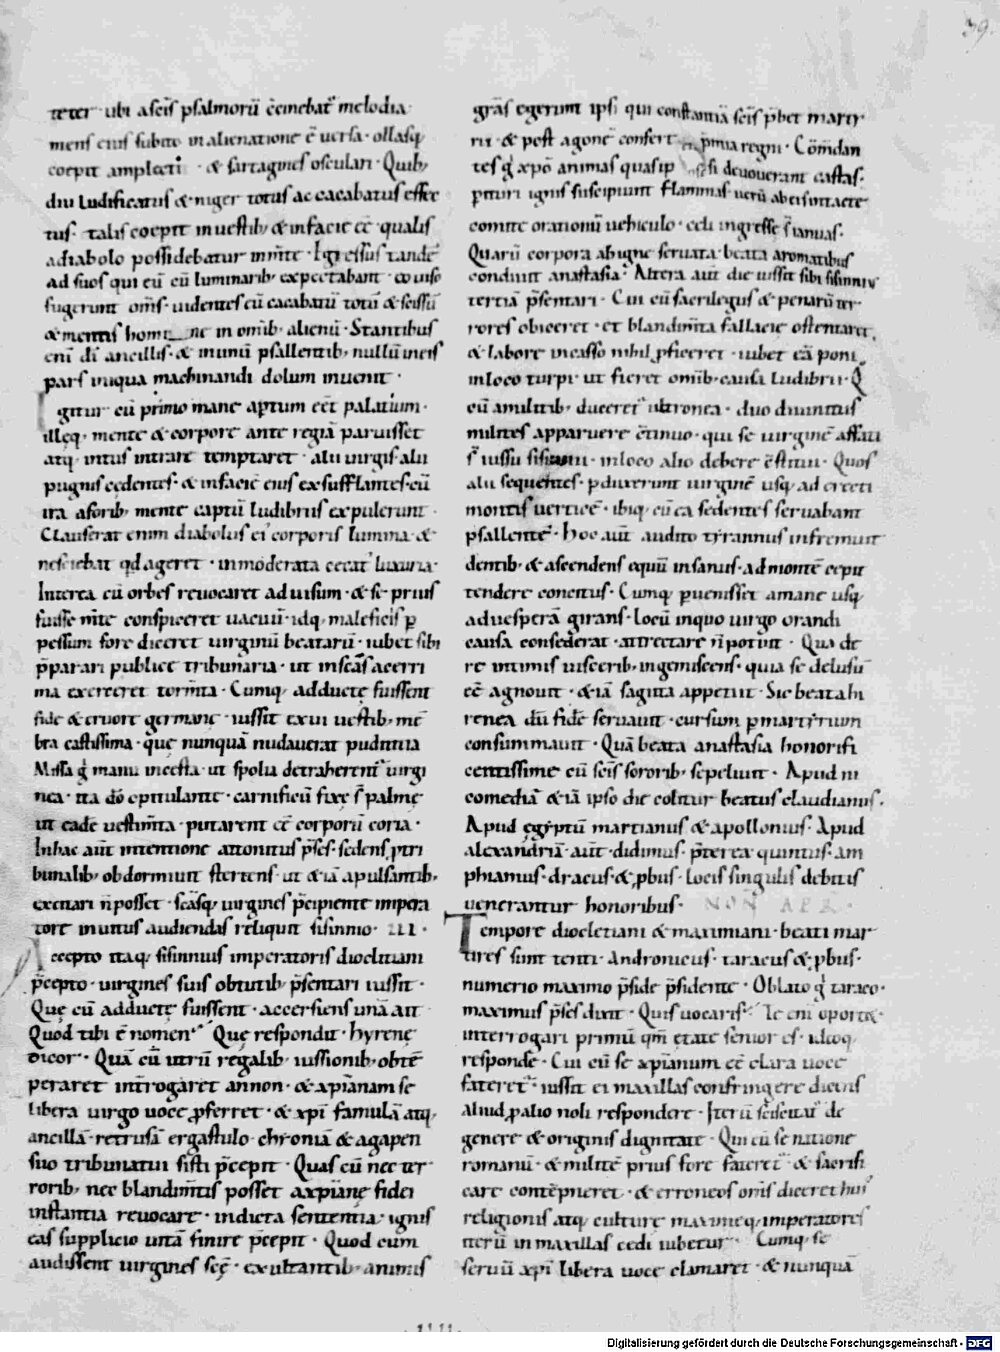 39.
teter ubi a sc̄is psalmorū c̄cinebat᷑ melodia·
mens eius subito in alienatione ē uersa· ollasq;
coepit amplecti· & sartagines osculari· Quib;
diu ludificatus & niger totus ac cacabatus effec
tus· talis coepit in uestib; & in facie eē· qualis
a diabolo possidebatur in m̄te· Egressus tandē
ad suos qui eū cū luminarib; expectabant· eo uiso
fugerunt om̄s· uidentes eū cacabatū totū & scissū
& mentis in omib; alienū· Stantibus
eni di ancillis· & in unū psallentib; nullū in eis
pars iniqua machinandi dolum inuenit·
Igitur cū primo mane aptum eēt palatium·
illęq; mente & corpore ante regiā paruisset
atq; intus intrare temptaret· alii uirgis alii
pugnis cędentes· & in faciē eius exsufflantes· eū
ita a forib; mente captū ludibriis expulerunt·
Clauserat enim diabolus ei corporis lumina· &
nesciebat qd ageret· inmoderata cecat luxuria·
Interea cū orbes reuocaret ad uisum· & se prius
fuisse m̄te conspiceret uacuū· idq; maleficiis p
pessum fore diceret uirginū beatarū· iubet sibi
p̄parari publice tribunaria· ut in scās acerri
ma exerceret torm̄ta· Cumq; adductę fuissent
fide & cruore germanę· iussit exui uestib; mē
bra castissima· quę nunquā nudauerat puditia
Missa g̊ manu incesta· ut spolia detraherent᷑ uirgi
nea· ita dō opitulante· carnificū fixę s̄ palmę
ut eadē uestim̄ta· putarent eē corporū coria·
In hac aūt intentione attonitus p̄ses· sedens p tri
bunalib; obdormiuit stertens· ut & iā a pulsantib;
excitari n̄ posset· scāsq; uirgines p̄cipiente impera
tore inuitus audiendas reliquit sisinnio· III·
Accepto itaq; sisinnius imperatoris diocletiani
p̄cepto· uirgines suis obtutib; p̄sentari iussit·
Quę cū adductę fuissent· accersiens unā ait
Quod tibi ē nomen? Quę respondit· hyrenę
dicor· Quā cū utrū regalib; iussionib; obtē
peraret int̄rogaret annon· & xpianam se
libera uirgo uoce pferret· & xpi famulā atq;
ancillā· retrusā ergastulo· chroniā & agapen
suo tribunatui sisti p̄cepit· Quas cū nec ter
rorib; nec blandim̄tis posset a xpianę fidei
instantia reuocare· indicta sententia· ignis
eas supplicio uitā finire p̄cepit· Quod cum
audissent uirgines scę̄· exultantib; animis
grās egerunt ipsi qui constantiā scis p̄bet marty
rii· & post agonē confert p̄mia regni· Cōmdan
tes g̊ xpo animas quas ip si deuouerant castas·
pituri ignis suscipiunt flammas· uerū ab eis intacte
comite orationū uehiculo· celi ingresse s̄ ianuas·
Quarū corpora ab igne seruata· beata aromatibus
condiuit anastasia· Altera aūt die iussit sibi sisinnius
tertiā p̄sentari· Cui cū sacrilegus & penarū ter
rores obiceret· et blandim̄ta fallacie ostentaret·
& labore incasso nihil pficeret· iubet eā poni
in loco turpi· ut fieret omib; causa ludibrii· Q
cū a militib; duceret᷑ ultronea· duo diuinitus
milites apparuere c̄tinuo· qui se uirginē affati
s̄ iussu sisinnii· in loco alio debere c̄stitui· Quos
alii sequentes· pduxerunt uirginē usq; ad erecti
montis uerticē· ibiq; cū ea sedentes seruabant
psallentē· Hoc aūt audito tyrannus infremuit
dentib; & ascendens equū insanus· ad montē cepit
tendere concitus· Cumq; p uenisset a mane usq;
ad uesperā girans· Locū in quo uirgo orandi
causa consederat· attrectare n̄ potuit· Qua de
re intimis uiscerib; ingemiscens· quia se delusū
eē agnouit· & iā sagitta appetiit· Sic beata hi
renea dū fidē seruauit· cursum p martyrium
consummauit· Quā beata anastasia honorifi
centissime cū scis sororib; sepeliuit· Apud ni
comediā· & iā ipso die colitur beatus claudianus·
Apud egyptū martianus & apollonius· Apud
alexandriā· aūt· didimus· p̄terea quintus· am
phianus· dracus· & pbus· locis singulis debitis
uenerantur honoribus· NON APR·
Tempore diocletiani & maximiani· beati mar
tires sunt tenti· Andronicus· taracus & pbus·
numerio maximo p̄side p̄sidente· Oblato g̊ taraco·
maximus p̄ses dixit· Quis uocaris? Te eni oportet
interrogari primū qm̄ etate senior es· ideoq;
respondē· Cui cū se xpianum eē clara uoce
fateret᷑· iussit ei maxillas confringere dicens
aliud p alio noli respondere· Iterū sciscitat᷑ de
genere & originis dignitate· Qui cū se natione
romanū· & militē prius fore fateret᷑· & sacrifi
care contēpneret· & erroneos om̄s diceret hui᷒
religionis atq; culture maximeq; imperatores
iterū in maxillas cedi iubetur· Cumq; se
seruū xpi libera uoce clamaret· & nunquā
IIII·
Digitalisierung gefördert durch die Deutsche Forschungsgemeinschaft - DFG